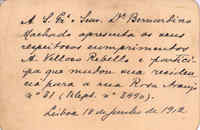 A S. Ex.ª o Snr. Dr. Bernardino
Machado apresenta os seus
respeitosos cumprimentos
A. Velloso Rebello e partici-
pa que mudou sua residen-
cia para a rua Rosa Araujo
nº 31 (Teleph. nº 3490).
Lisboa 10 de Junho de 1912